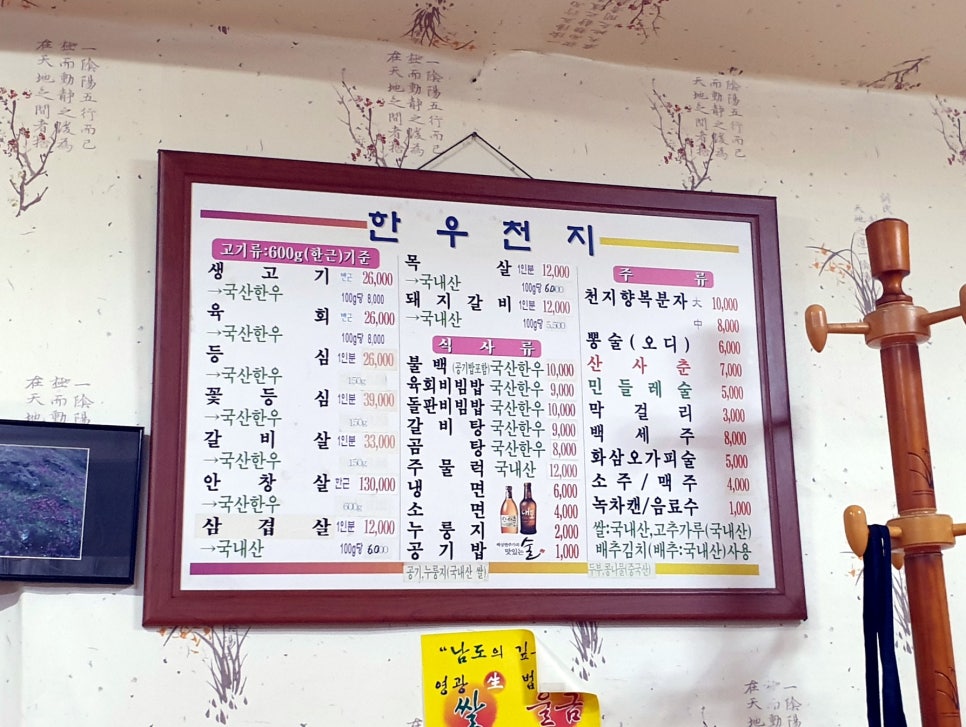 한우천지
고기류:600g(한근)기준
생고기 반근 26,000
→국산한우 100g당 8,000
육회 반근 26,000
→국산한우 100g당 8,000
등심 1인분 26,000
→국산한우 150g
꽃등심 1인분 39,000
→국산한우 150g
갈비살 1인분 33,000
→국산한우 150g
안창살 한근 130,000
→국산한우 600g
삼겹살 1인분 12,000
→국내산 100g당 6,000
목살 1인분 12,000
→국내산 100g당 6,000
돼지갈비 1인분 12,000
→국내산 100g당 5,500
식사류
불백(공기밥포함) 국산한우 10,000
육회비빔밥 국산한우 9,000
돌판비빔밥 국산한우 10,000
갈비탕 국산한우 9,000
곰탕 국산한우 8,000
주물럭 국내산 12,000
냉면 6,000
소면 4,000
누룽지 2,000
공기밥 1,000
맛있는 술
공기,누룽지(국내산 쌀)
주류
천지향복분자 大 10,000
中 8,000
뽕술(오디) 6,000
산사춘 7,000
민들레술 5,000
막걸리 3,000
백세주 8,000
화삼오가피술 5,000
소주/맥주 4,000
녹차캔/음료수 1,000
쌀:국내산,고추가루(국내산)
배추김치(배추:국내산)사용
두부,콩나물(중국산)
"남도의 깊
영광 生 범
쌀 울금
一陰陽五行而已
極而動靜之
在天地之間者